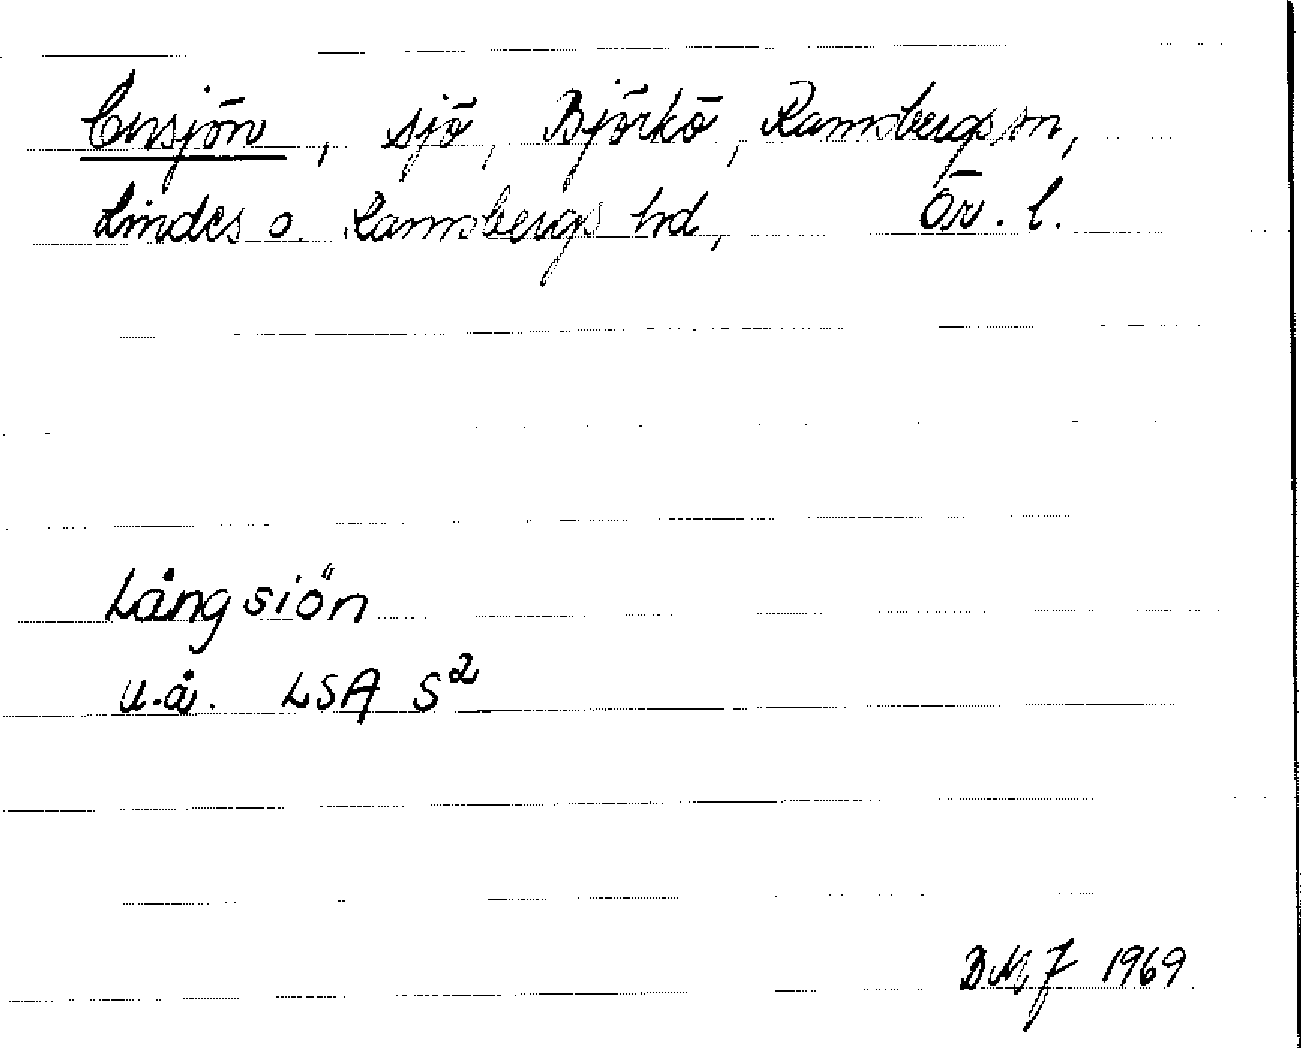 Ensjön, sjö, Björkö, Ramsbergs sn,
Lindes o. Ramsbergs hd, Ör. l.
Långsiön
u.å. LSA S²
BMJ 1969